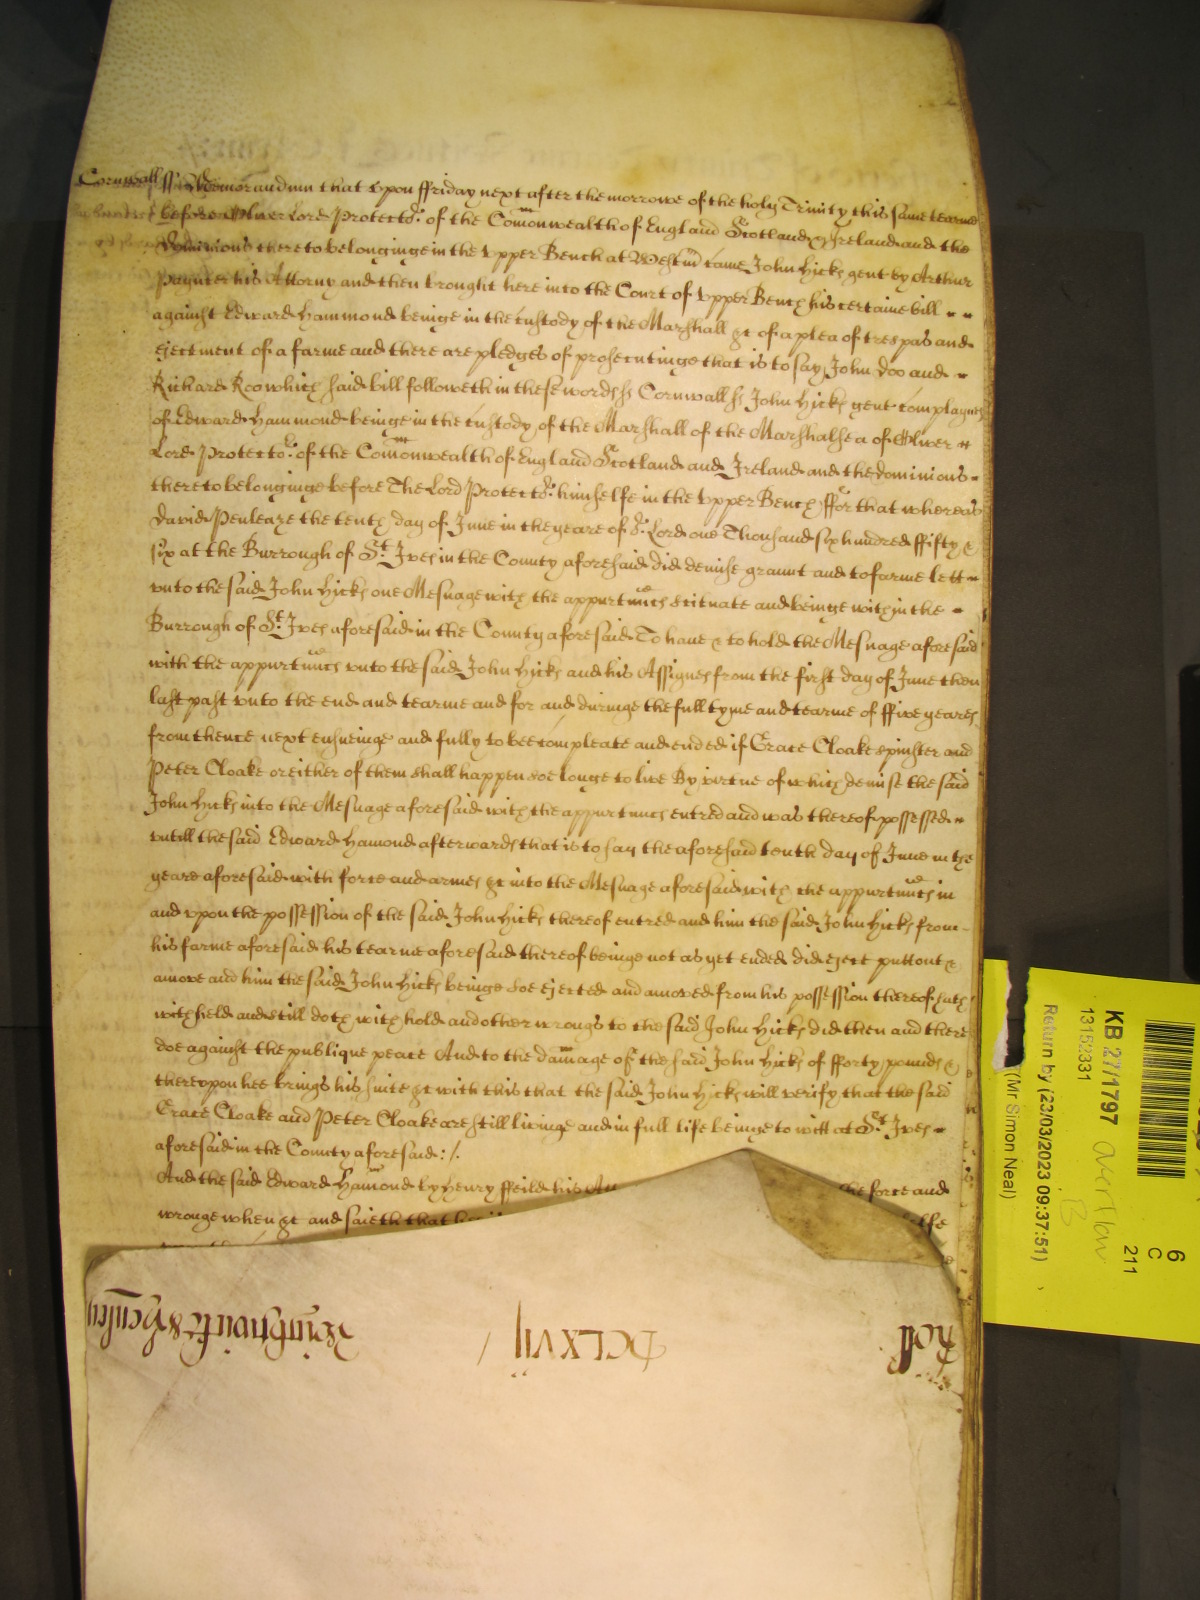 Cornwall ss Memorandum that vpon ffriday next after the morrowe of the holy Trinity this same tearme
before Oliver Lord Protector. of the Comonwealth of England Scotland & Ireland and the
Dominions there to belonginge in the vpper Bench at Westm came John Hicks gent by Arthur
Paynter his Attorny and then brought here into the Court of vpper Bench his certaine bill
against Edward Hammond beinge in the custody of the Marshall &c of a plea of trespas and
ejectment of a farme and there are pledges of prosecutinge that is to say John Doo and
Richard Roo which said bill followeth in these words ss Cornwall ss John Hicks gent complaynes
of Edward Hammond beinge in the custody of the Marshall of the Marshalsea of Oliver
Lord Protector. of the Comonwealth of England Scotland and Ireland and the dominions
there to belonginge before The Lord Protector. himselfe in the vpper Bench ffor that whereas
David Penleaze the tenth day of June in the yeare of or. Lord one Thousand six hundred ffifty &
six at the Burrough of St. Ives in the County aforesaid did demise graunt and to farme lett
vnto the said John Hicks one Mesuage with the appurtnncs scituate and beinge within the
Burrough of St. Ives aforesaid in the County aforesaid To haue & to hold the Mesuage aforesaid
with the appurtnncs vnto the said John Hicks and his Assignes from the first day of June then
last past vnto the end and tearme and for and duringe the full tyme and tearme of ffive yeares
from thence next ensueinge and fully to bee compleate and ended if Grace Cloake spinster and
Peter Cloake or either of them shall happen soe longe to live By virtue of which demise the said
John Hicks into the Mesuage aforesaid with the appurtnncs entred and was thereof possessed
vntill the said Edward Hamond afterwards that is to say the aforesaid tenth day of June in the
yeare aforesaid with force and armes &c into the Mesuage aforesaid with the appurtnncs in
and vpon the possession of the said John Hicks thereof entred and him the said John Hicks from
his farme aforesaid his tearme aforesaid thereof beinge not as yet ended did eject putt out &
amove and him the said John Hicks beinge soe ejected and amoved from his possession thereof hath
withheld and still doth withhold and other wrongs to the said John Hicks did then and there
doe against the publique peace And to the damage of the said John Hicks of fforty pounds &
therevpon hee brings his suite &c with this that the said John Hicks will verify that the said
Grace Cloake and Peter Cloake are still livinge and in full life beinge to witt at St. Ives
aforesaid in the County aforesaid :/.
And the said Edward Hamond by Henry ffeild his he force and
wronge when &c and saieth that
Roll
DCLXVII /
KB 27/1797
13152331
Return by (23/03/2023 09:37:51)
(Mr Simon Neal)
overflow
B
6
C
211